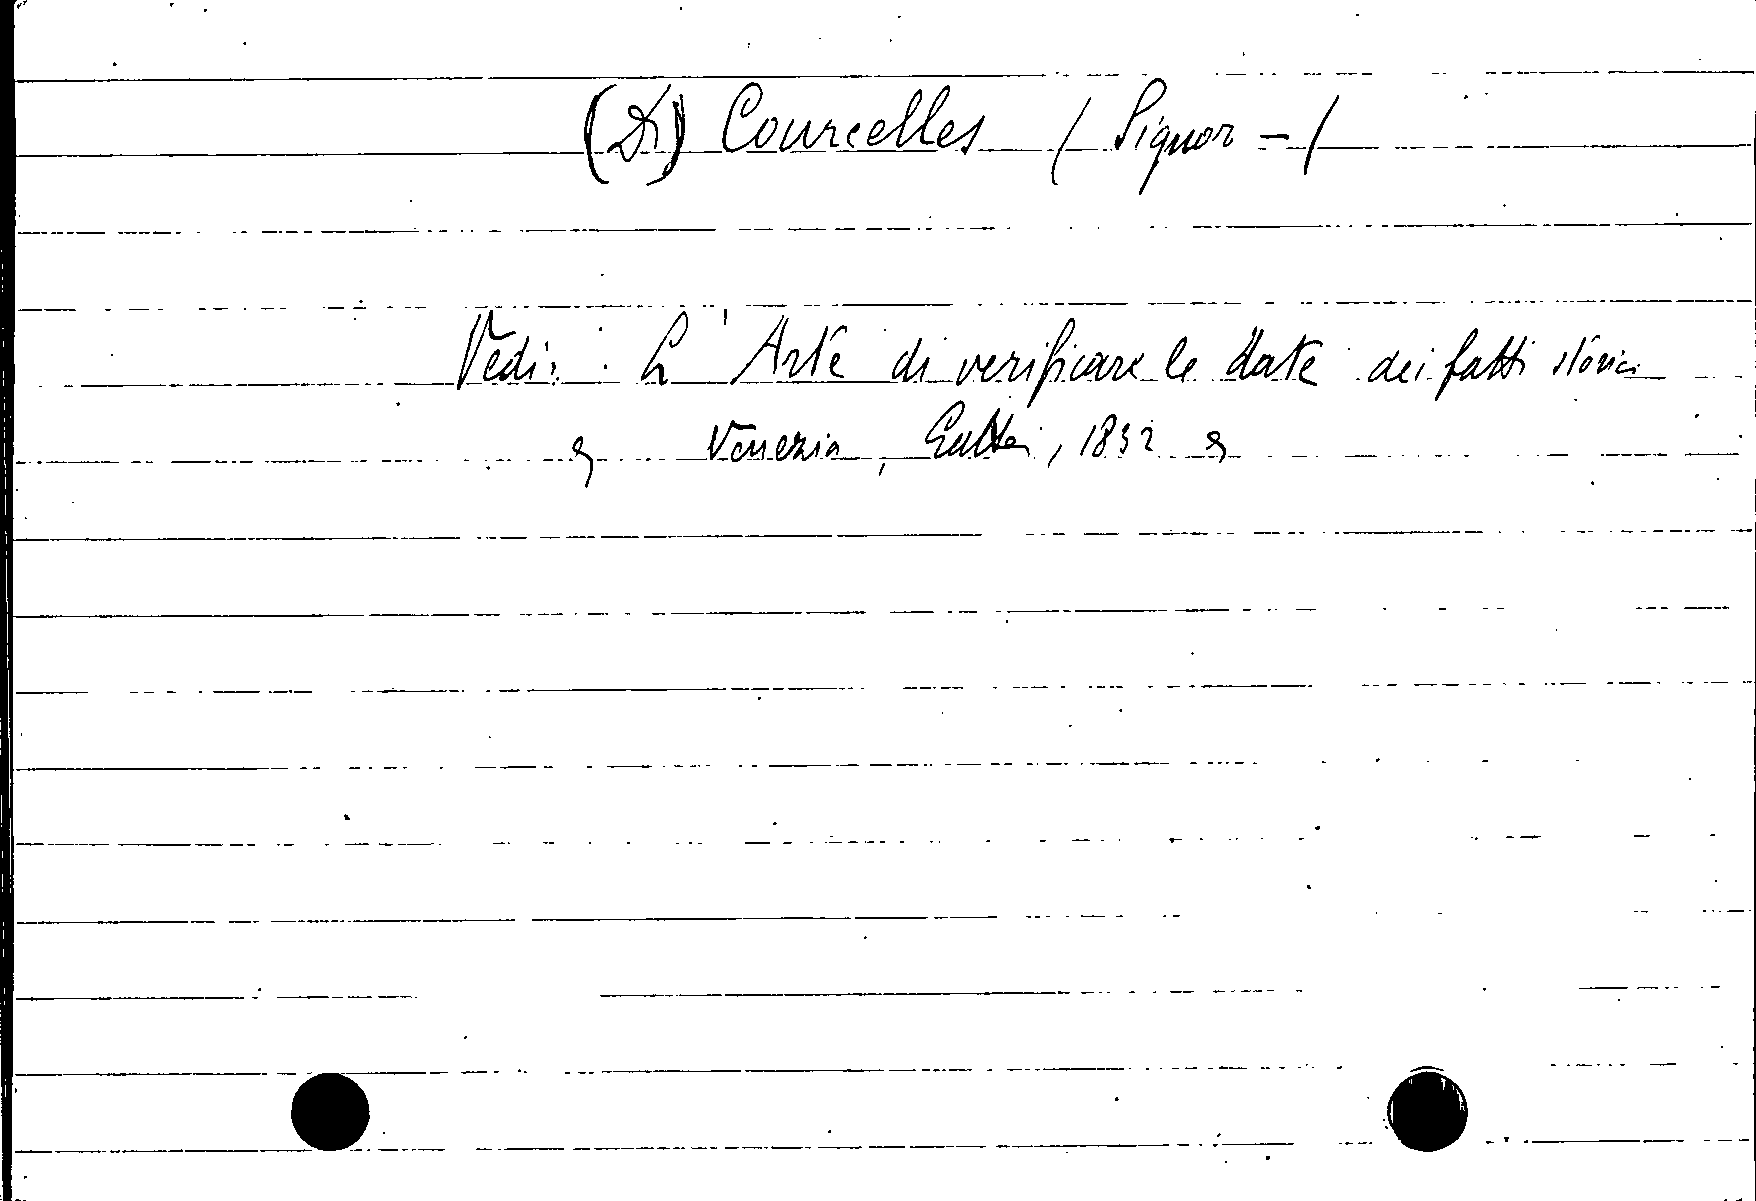 (Di) Courcelles / Signor - /
Vedi: L'Arte di verificare le date dei fatti storici
Venezia, 1832